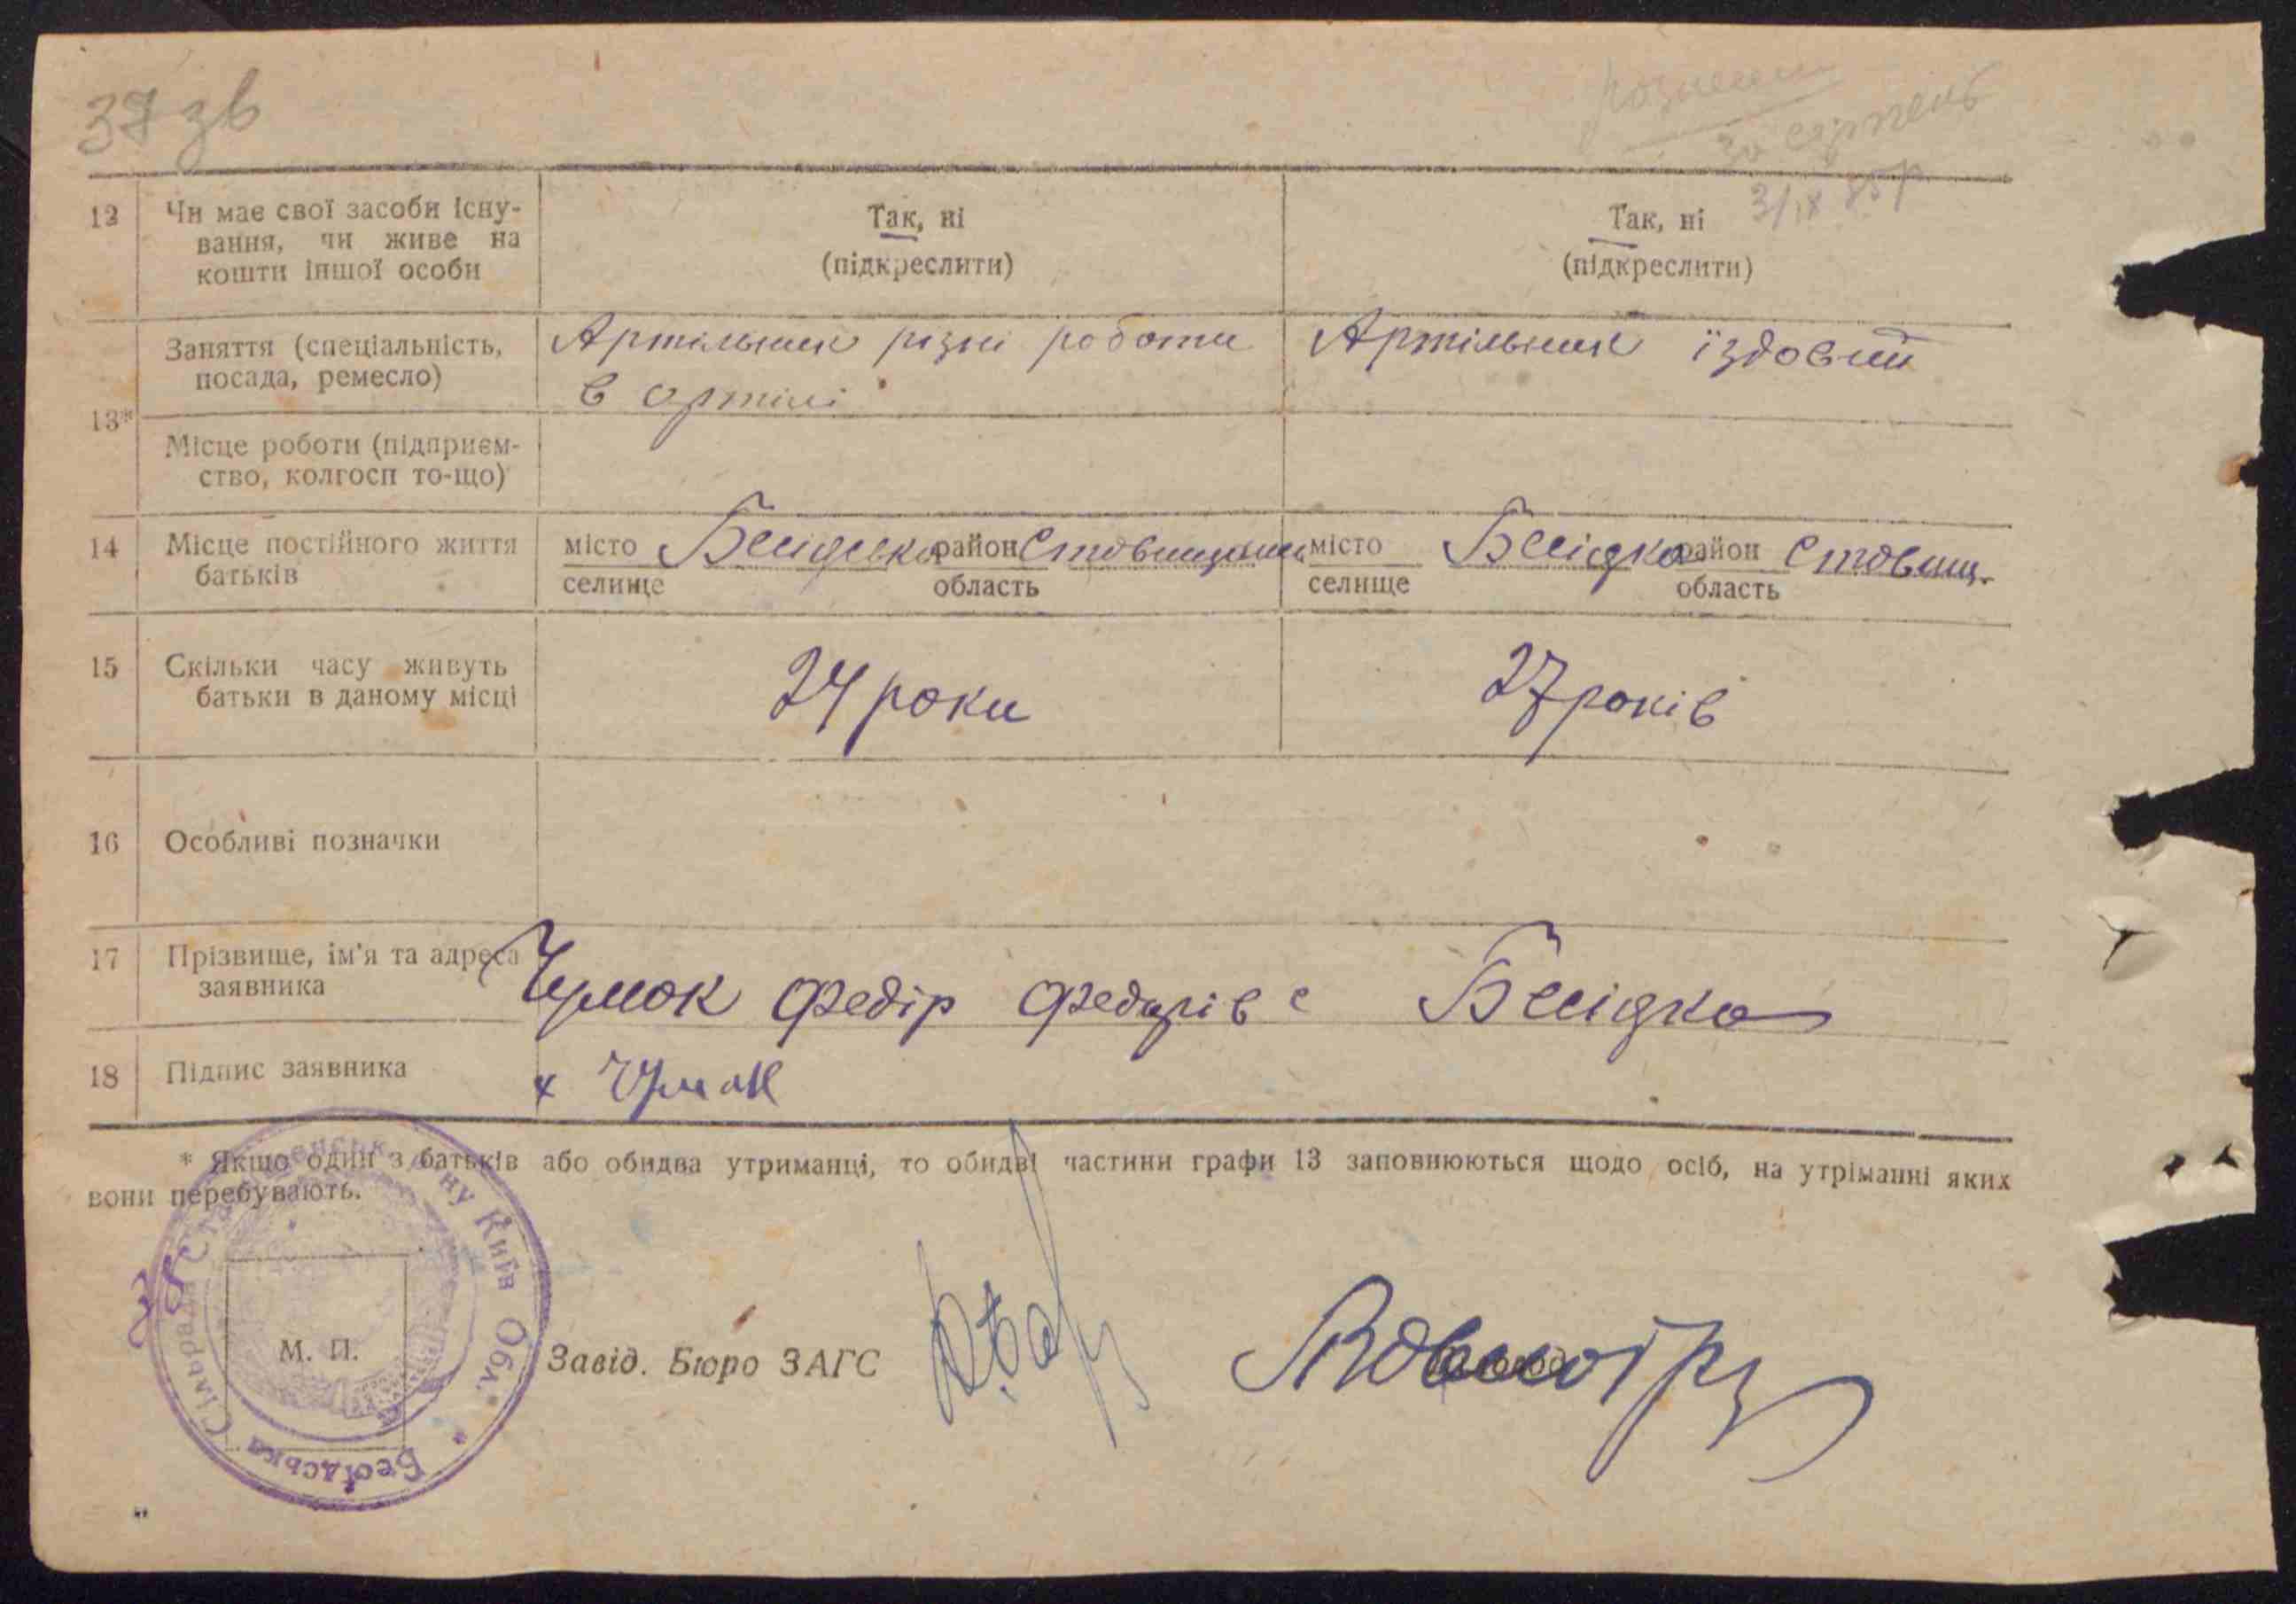 37 зв
за серпень
3/IX 85р
12 Чи має свої засоби існу- Так, ні Так, ні
вання, чи живе на (підкреслити) (підкреслити)
кошти іншої особи
13* Заняття (спеціальність, Артільник різні роботи Артільник їздовий
посада, ремесло) в артілі
Місце роботи (підприєм-
ство, колгосп то-що)
14 Місце постійного життя місто район місто Бесідка район Ставищ.
батьків селище область селище область
15 Скільки часу живуть 24 роки 27 років
батьки в даному місці
16 Особливі позначки
17 Прізвище, ім'я та адреса Чумок Федір Федорів с Бесідка
заявника
18 Підпис заявника х Чумак
* Якщо один з батьків або обидва утриманці, то обидві частини графи 13 заповнюються щодо осіб, на утріманні яких
вони перебувають.
Бесідська Сільрада Ну Київ Обл. *
М. П.
Завід. Бюро ЗАГС